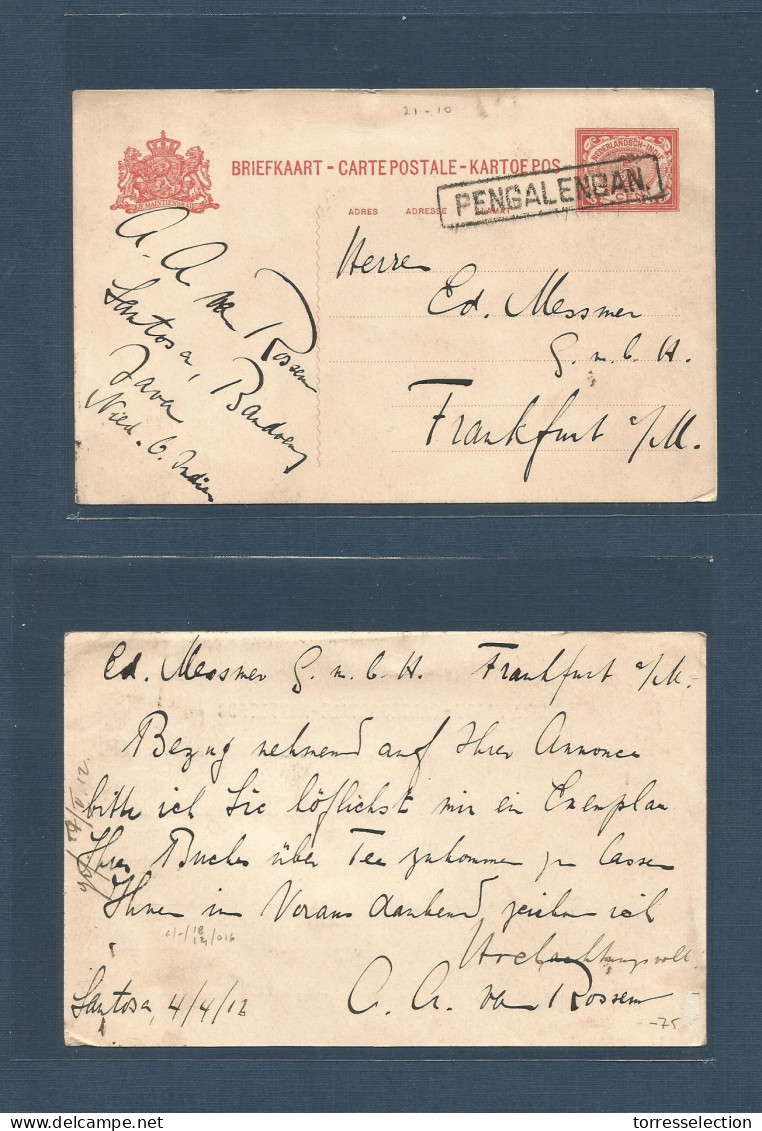 21-10
BRIEFKAART - CARTE POSTALE - KARTOE POS
JE MAINTIENDRAI
NEDERLANDSCH-INDIË
CENT
PENGALENGAN.
ADRES ADRESSE
A. A. van Rossem
Santosa, Bandoeng
Java
Nied. O. Indien
Herren
Ed. Messmer
G. m. b. H.
Frankfurt a/M.
Ed. Messmer G. m. b. H. Frankfurt a/M.
Bezug nehmend auf Ihrer Annonce
bitte ich Sie höflichst mir ein Exemplar
Ihres Buches über Tee zukommen zu lassen
Ihnen im Voraus dankend zeichne ich
Hochachtungsvoll
A. A. van Rossem
Santosa, 4/4/12
-75
torresselection